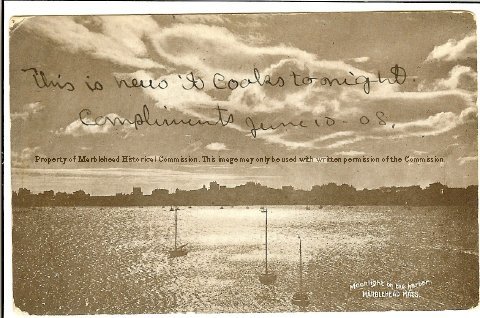 This is how it looks tonight.
Compliments June 10 - 08.
Property of Marblehead Historical Commission. This image may only be used with written permission of the Commission.
Moonlight on the harbor
MARBLEHEAD MASS.